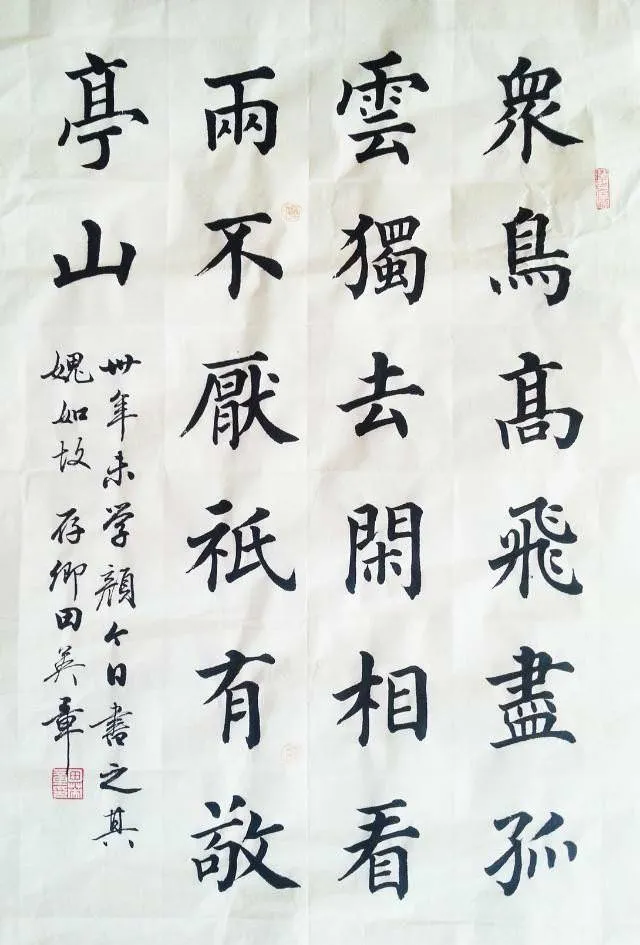 衆鳥高飛盡孤
雲獨去閑相看
兩不厭祇有敬
亭山
卅年未学顔今日書之其
媿如故 存卿田英章